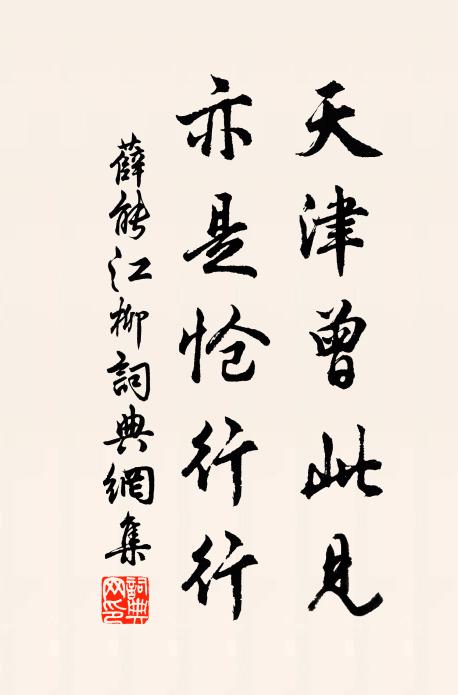 天津曾此見
亦是怆行行
薛能江柳詞典網集
詞典网印